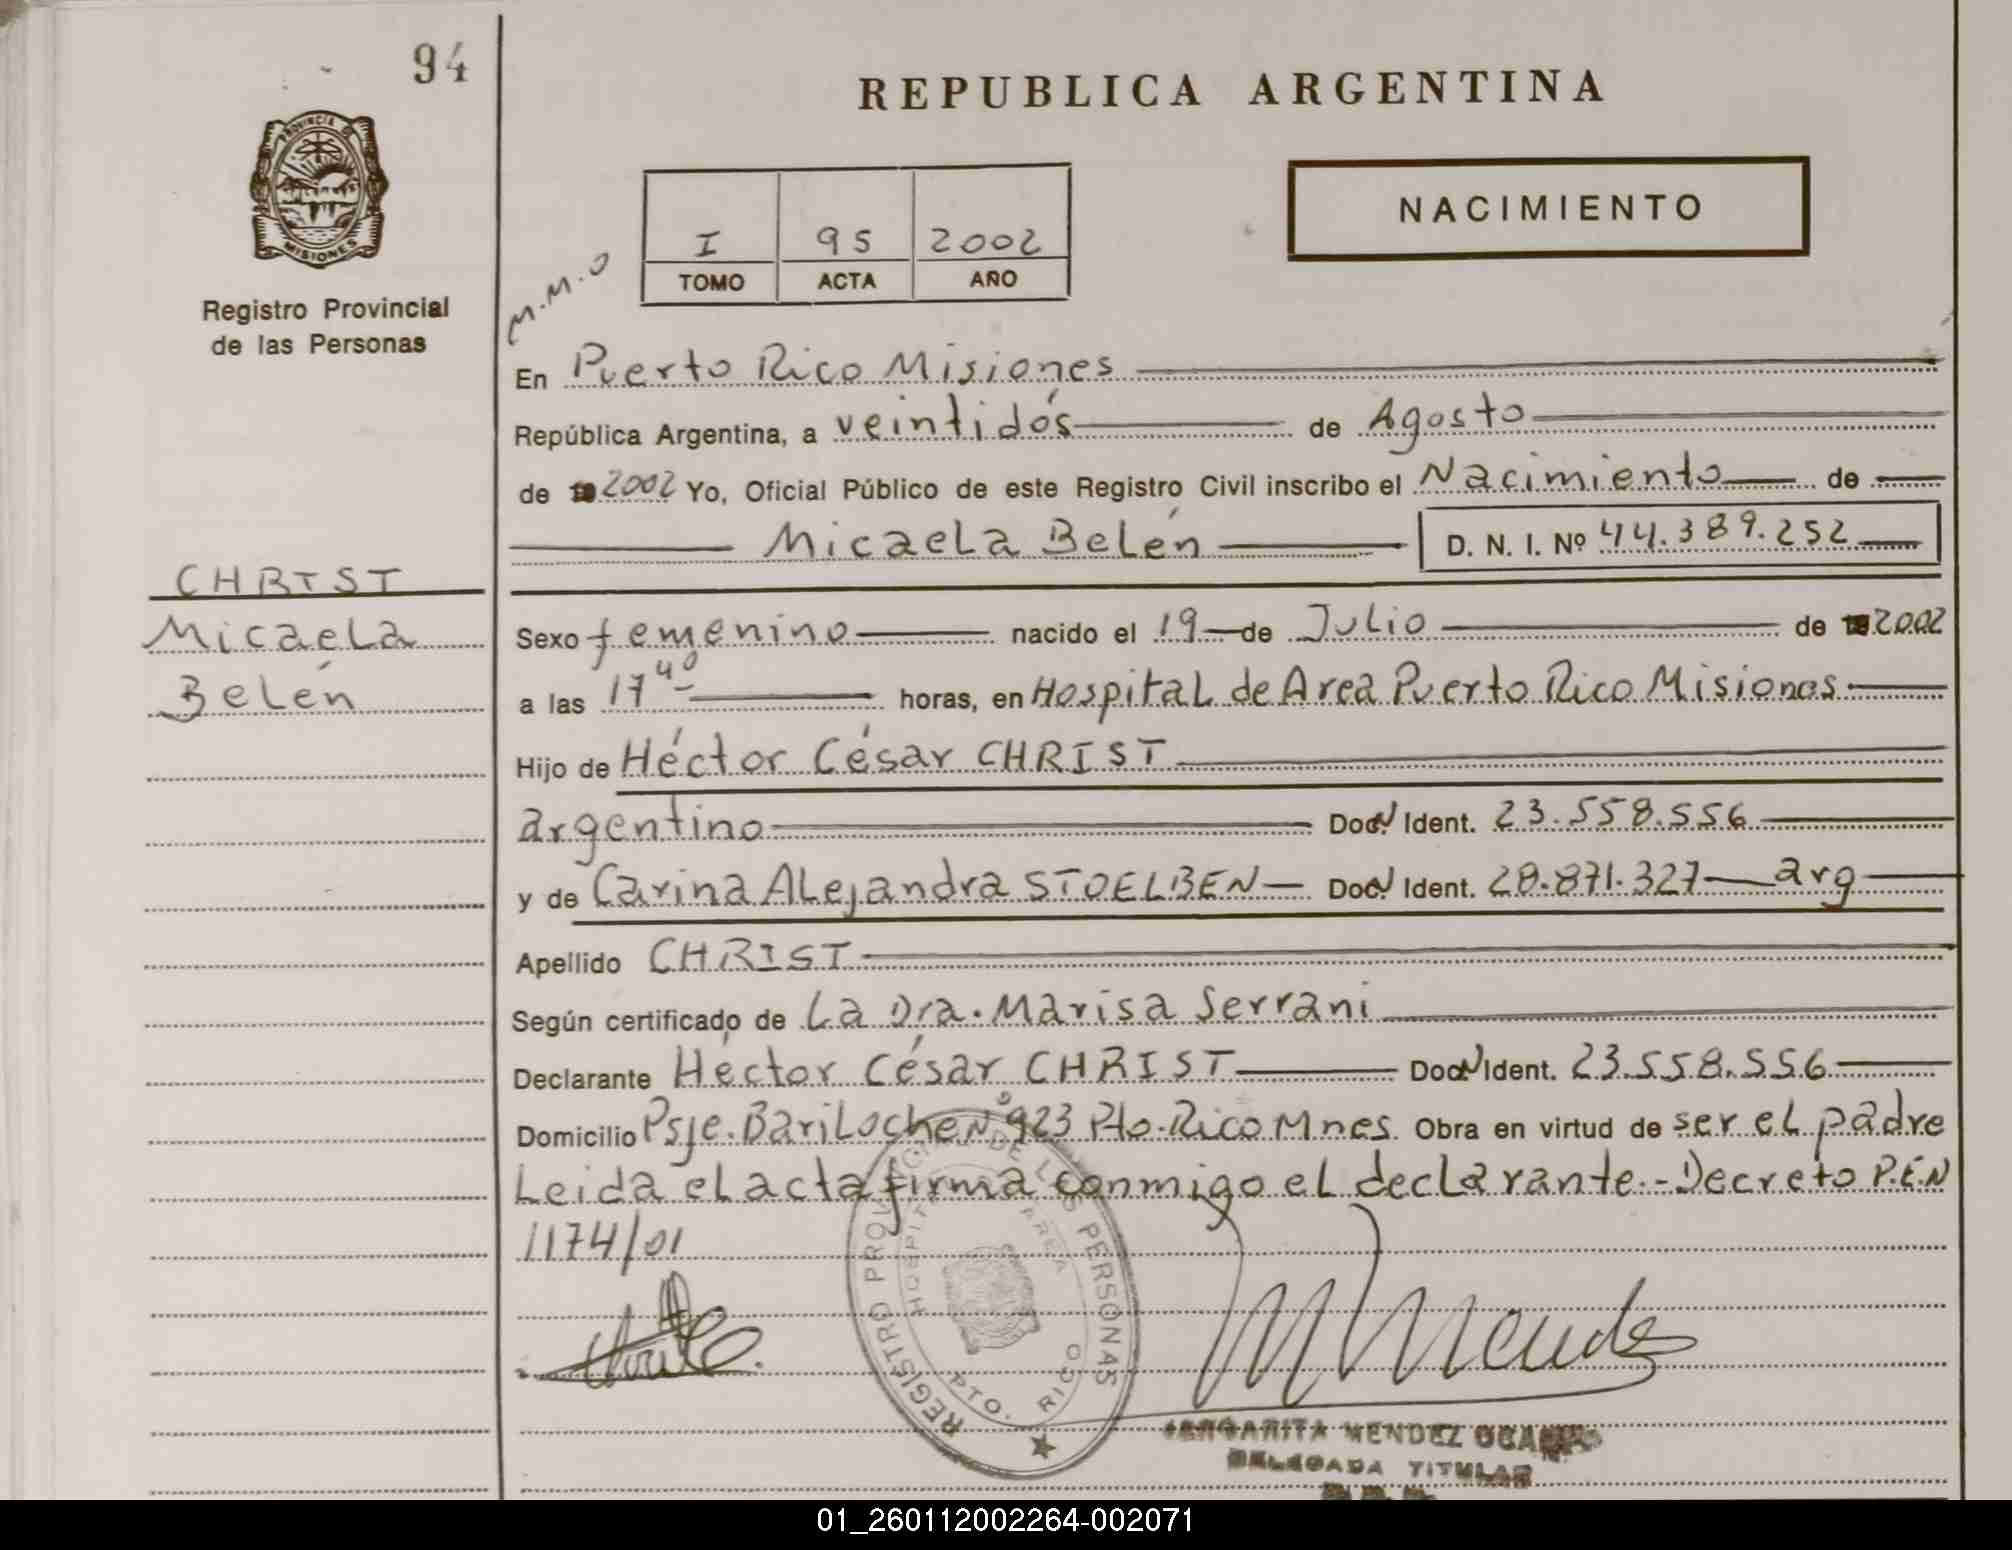 94
REPUBLICA ARGENTINA
PROVINCIA DE
MISIONES
Registro Provincial
de las Personas
NACIMIENTO
I 95 2002
TOMO ACTA AÑO
M.M.O
En Puerto Rico Misiones
República Argentina, a veintidós de Agosto
de 2002 Yo, Oficial Público de este Registro Civil inscribo el Nacimiento de
Micaela Belén D. N. I. Nº 44.389.252
CHRIST
Micaela
Belén
Sexo femenino nacido el 19 de Julio de 2002
a las 17 40 horas, en Hospital de Area Puerto Rico Misiones
Hijo de Héctor César CHRIST
argentino Doc. Ident. 23.558.556
y de Carina Alejandra STOELBEN Doc. Ident. 28.871.327 arg
Apellido CHRIST
Según certificado de La Dra. Marisa Serrani
Declarante Héctor César CHRIST Doc. Ident. 23.558.556
Domicilio Psje. Bariloche Nº 923 Pto. Rico Mnes. Obra en virtud de ser el padre
Leida el acta firma conmigo el declarante.- Decreto P.E.N
1174/01
REGISTRO PROVINCIAL DE LAS PERSONAS
HOSPITAL AREA
PTO. RICO
MARGARITA MENDEZ
DELEGADA TITULAR
01_260112002264-002071